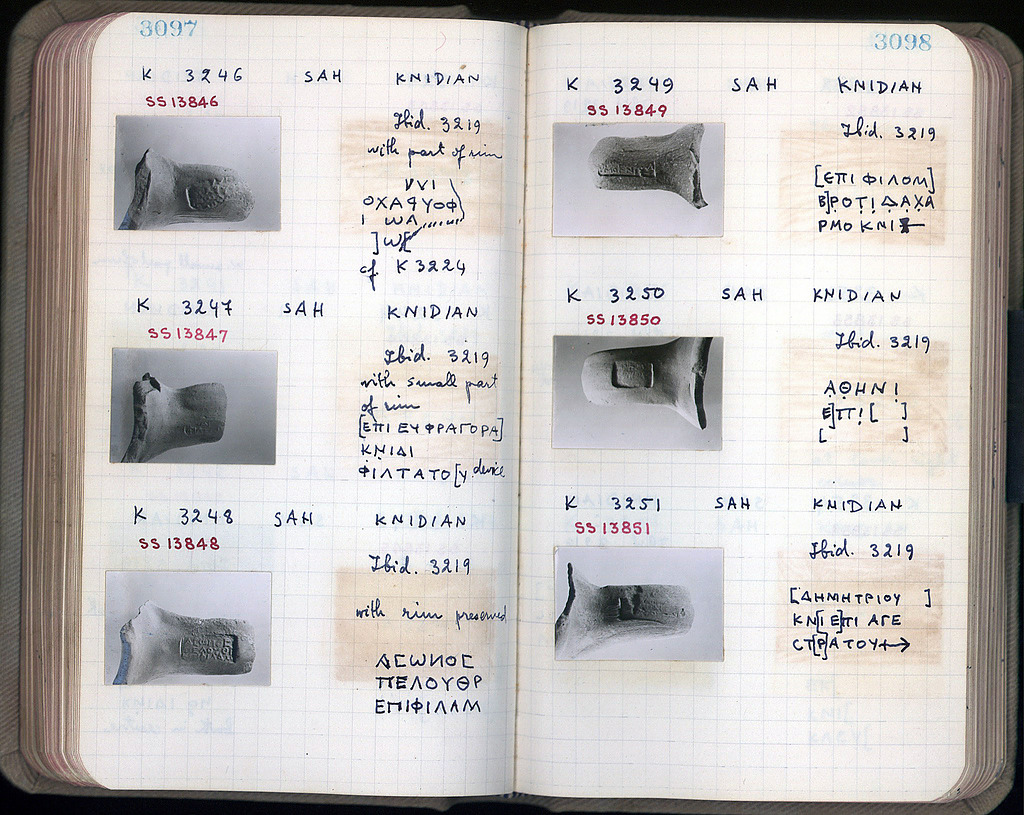 3097
K 3246 SAH KNIDIAN
SS 13846
Ibid. 3219
with part of rim
ΟΧΑ
Ι ΩΑ
]Ω[
cf. K 3224
K 3247 SAH KNIDIAN
SS 13847
Ibid. 3219
with small part
of rim
[ΕΠΙ ΕΥΦΡΑΓΟΡΑ]
ΚΝΙΔΙ
ΦΙΛΤΑΤΟ[Υ. device
K 3248 SAH KNIDIAN
SS 13848
Ibid. 3219
with rim preserved
ΛΕΩΝΟC
ΠΕΛΟΥΘΡ
ΕΠΙΦΙΛΑΜ
3098
K 3249 SAH KNIDIAN
SS 13849
Ibid. 3219
[ΕΠΙ ΦΙΛΟΜ]
Β]ΡΟΤΙΔΑΧΑ
ΡΜΟ ΚΝΙ
K 3250 SAH KNIDIAN
SS 13850
Ibid. 3219
ΑΘΗΝΙ
Ε]ΠΙ[ ]
[ ]
K 3251 SAH KNIDIAN
SS 13851
Ibid. 3219
[ΔΗΜΗΤΡΙΟΥ ]
ΚΝ[ΙΕ]ΠΙ ΑΓΕ
CΤ[Ρ]ΑΤΟΥ